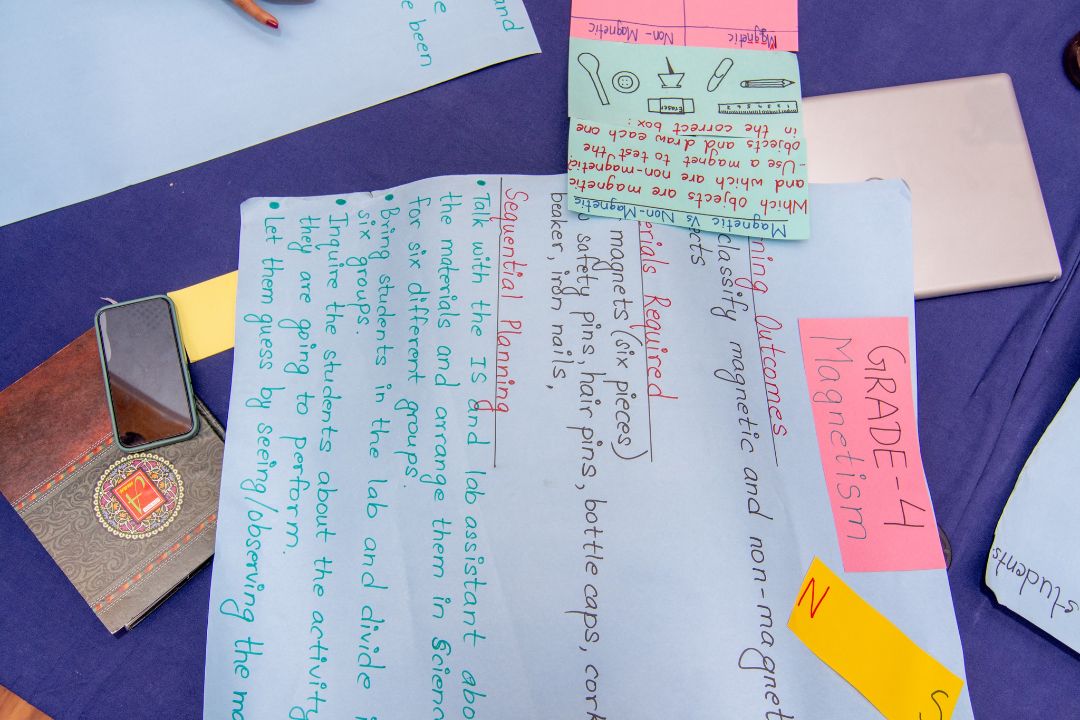 GRADE-4
Magnetism
N
S
ning Outcomes
classify magnetic and non-magnet
cts
erials Required
magnets (six pieces)
safety pins, hair pins, bottle caps, cork
beaker, iron nails,
Sequential Planning
• Talk with the IS and lab assistant abo
the materials and arrange them in Scien
for six different groups.
• Bring students in the lab and divide i
six groups.
• Inquire the students about the activity
they are going to perform.
• Let them guess by seeing/observing the ma
Magnetic Vs Non-Magnetic
Which objects are magnetic
and which are non-magnetic.
- Use a magnet to test the
objects and draw each one
in the correct box:
Eraser
Magnetic
Non-Magnetic
and
e
e been
students